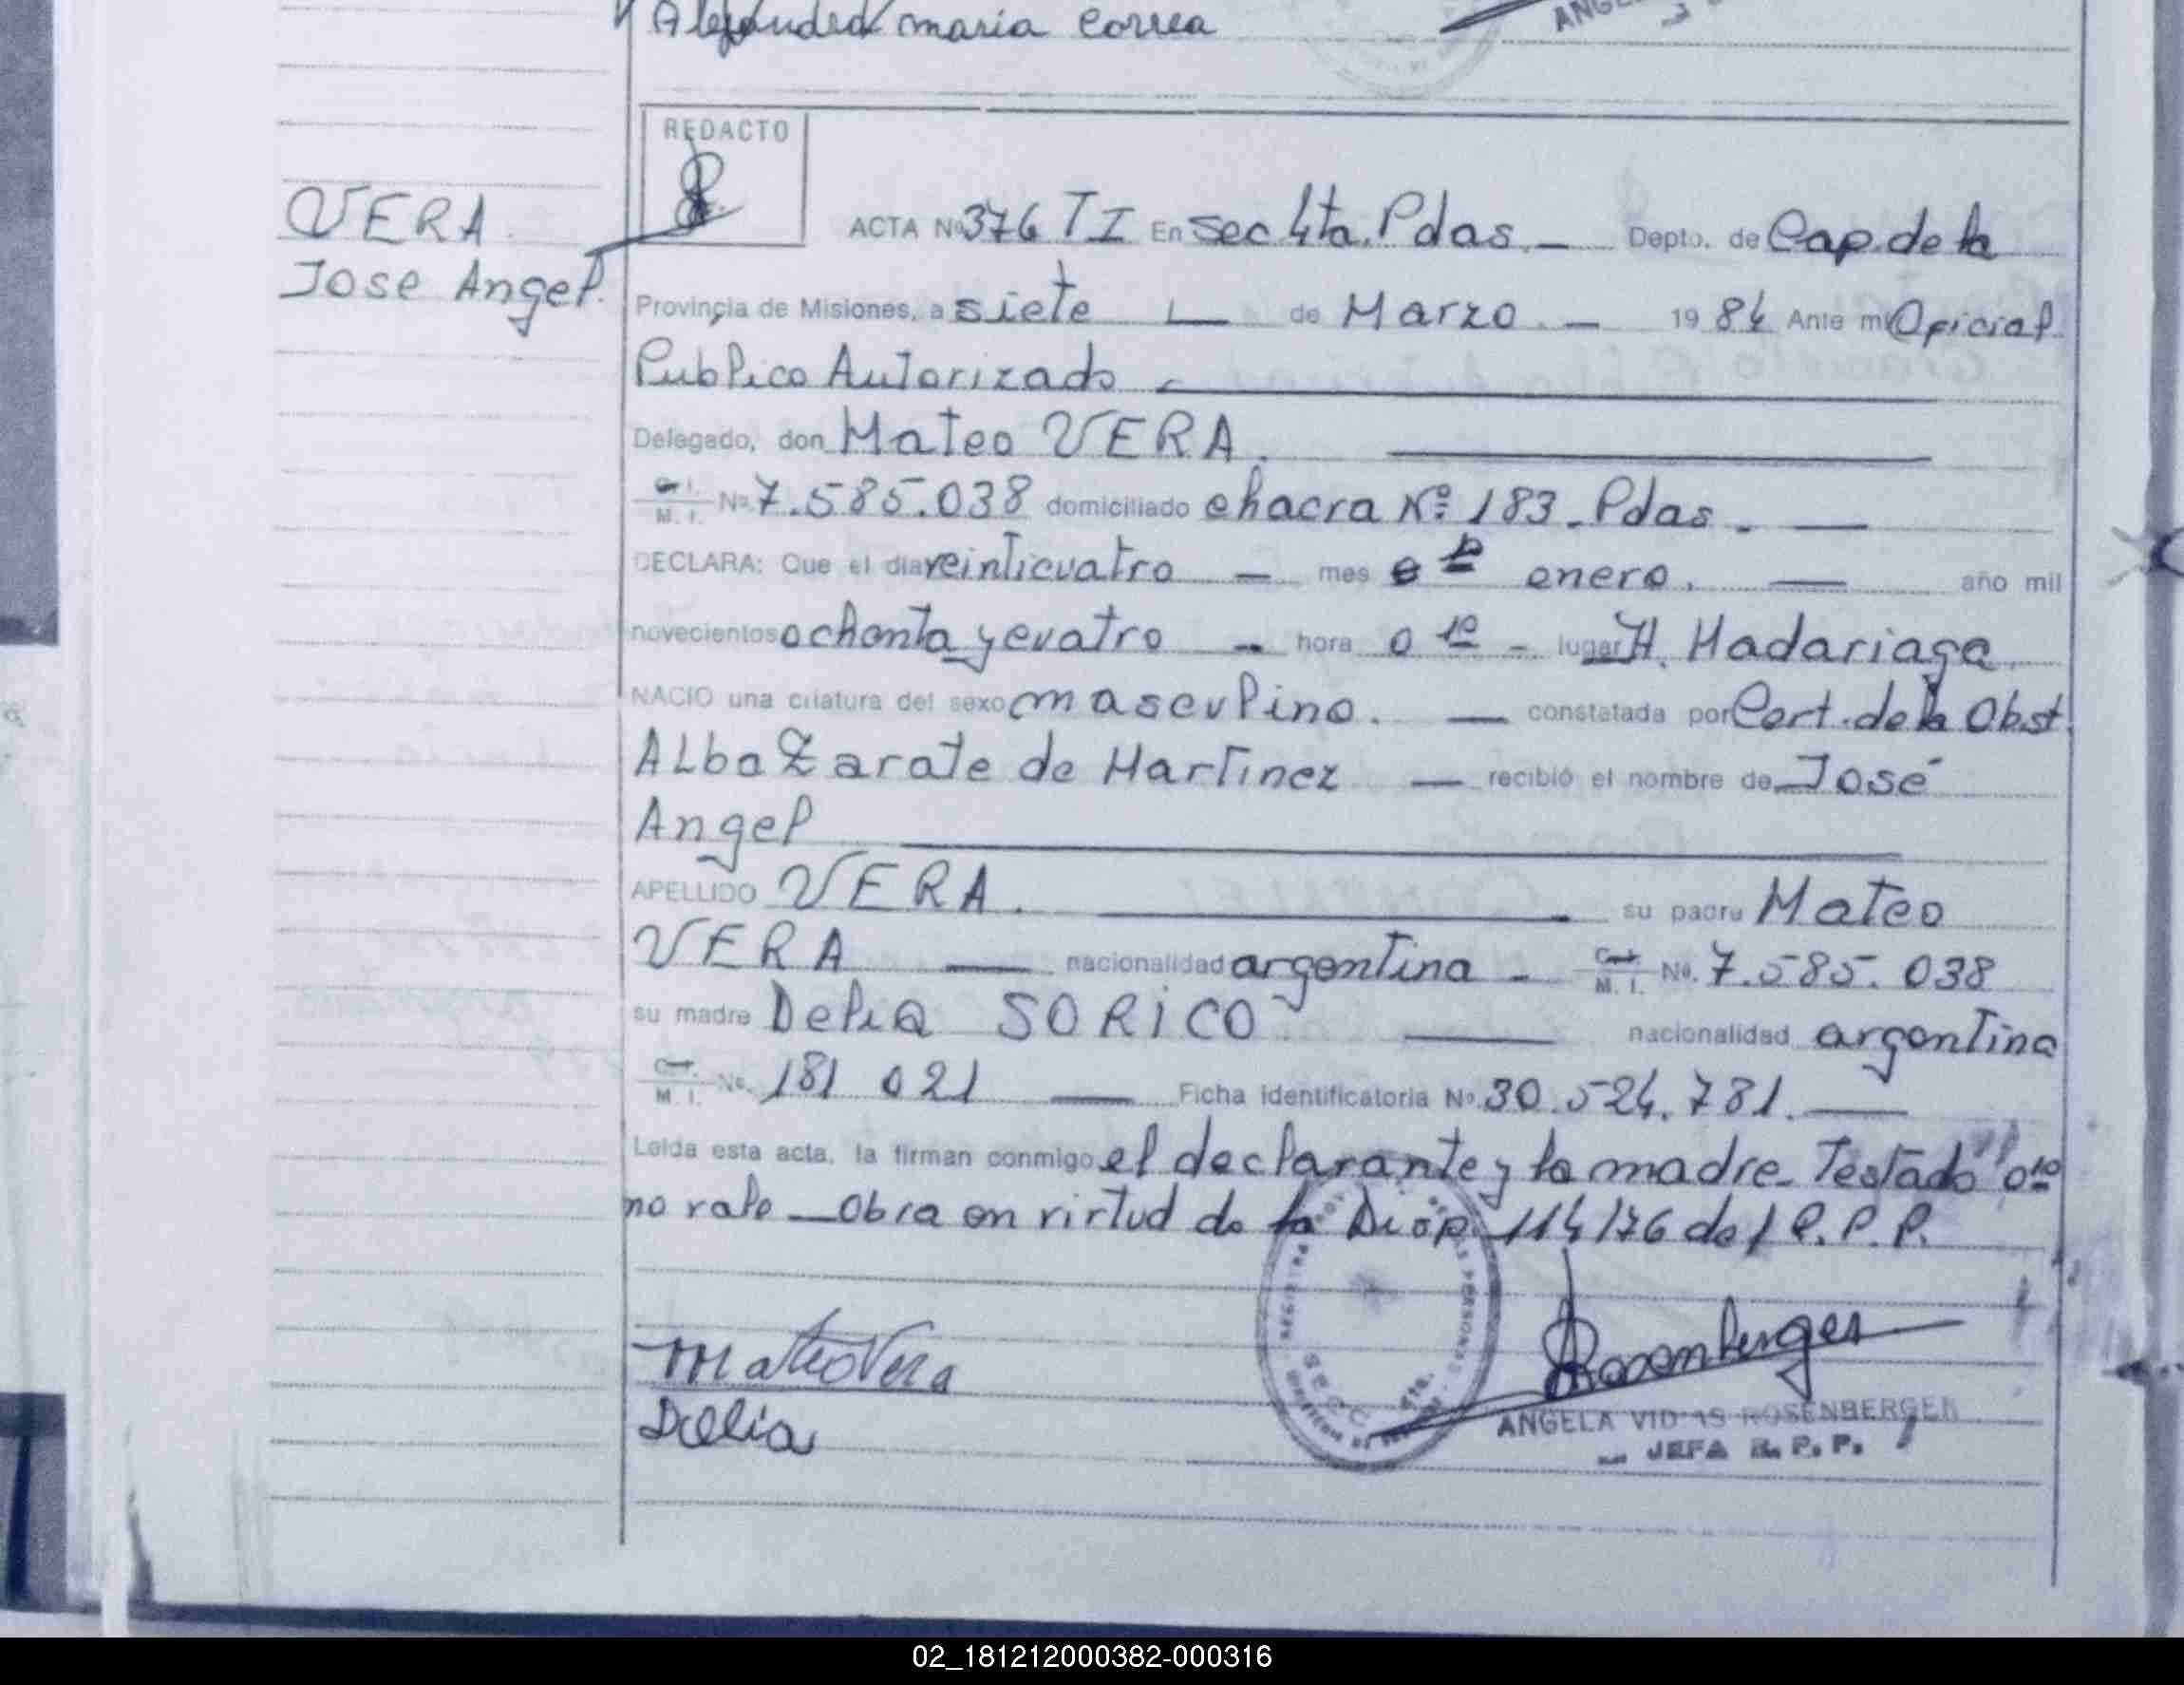 Alejandra maria Correa
REDACTO
VERA
Jose Angel.
ACTA Nº 376 TI En Sec 4ta. Pdas. — Depto. de Cap. de la
Provincia de Misiones, a siete — de Marzo. — 19 84 Ante mi Oficial
Publico Autorizado
Delegado, don Mateo VERA.
M. I. Nº 7.585.038 domiciliado chacra Nº 183 - Pdas. —
DECLARA: Que el dia veinticuatro — mes enero. — año mil
novecientos ochenta y cuatro — hora 0 10 — lugar H. Madariaga
NACIO una criatura del sexo masculino. — constatada por Cert. de la Obst.
Alba Zarate de Martinez — recibió el nombre de José
Angel
APELLIDO VERA. su padre Mateo
VERA — nacionalidad argentina — M. I. Nº. 7.585.038
su madre Delia SORICO — nacionalidad argentina
M. I. Nº. 181 021 — Ficha identificatoria Nº 30.524.781. —
Leida esta acta, la firman conmigo el declarante y la madre. Testado "
no vale — Obra en virtud de la Disp. 114/76 del R.P.P.
Mateo Vera
Rosenberger
Delia
SECC. 4ta.
ANGELA VIDAS ROSENBERGER
JEFA R. P. P.
02_181212000382-000316